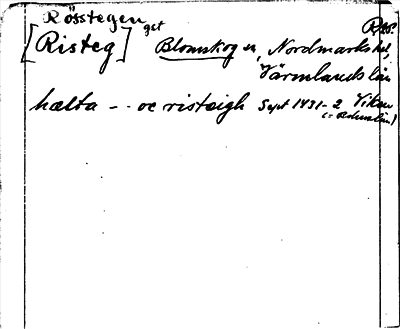 Rösstegen
[Risteg] get Blomskog sn, Nordmarks hd,
Värmlands län
hælta -- oc risteigh Sept 1431-2 Vikan